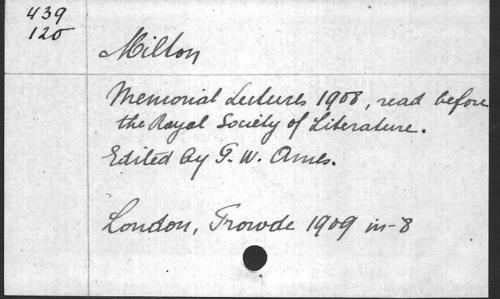 439
120
Milton
Memorial Lectures 1908, read before
the Royal Society of Literature.
Edited by P. W. Ames.
London, Frowde 1909 in-8